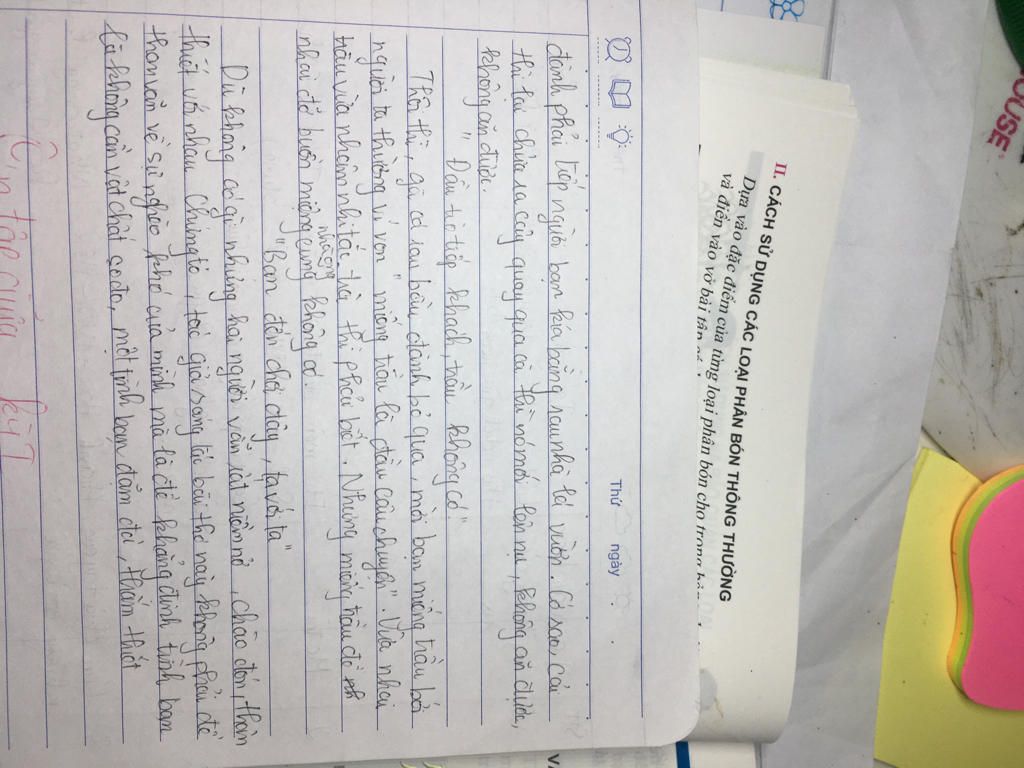 HOUSE
II. CÁCH SỬ DỤNG CÁC LOẠI PHÂN BÓN THÔNG THƯỜNG
Dựa vào đặc điểm của từng loại phân bón cho trong
và điền vào vở bài tập
Thứ ngày
đành phải tiếp người bạn kia bằng sau nhà lá vườn. Có sao, cái
thì tai chửa ra cây quay qua cà thì nó mới lên nụ, không ăn được,
không ăn được.
" Đầu trò tiếp khách, trầu không có"
Thôi thì, gã có sau bầu đành bỏ qua, mời bạn miếng trầu bởi
người ta thường ví von " miếng trầu là đầu câu chuyện". Vừa nhai
trầu vừa nhâm nhi tác trà thì phải biết. Nhưng miếng trầu để nh
nhai đỡ buồn miệng cũng không có.
nhưng
"Bạn đến chơi đây, ta với ta"
Dù không có gì nhưng hai người vẫn rất niềm nở, chào đón, thân
thiết với nhau. Chứng tỏ, tác giả sáng tác bài thơ này không phải để
than vãn về sự nghèo khó của mình mà là để khẳng định tình bạn
là không cần vật chất cao to, một tình bạn đậm đà, thắm thiết
Ôn tập giữa kỳ I